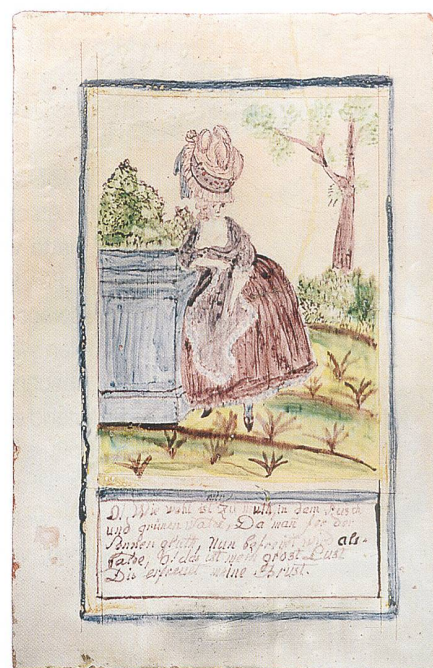 O! Wie wohl ist zu muth, in dem Busch
und grünen Wald, Da man for der
Sonnen gluth, Nun befreyet wird als-
bald, O! das ist mein gröst Lust
Die erfreut meine Brust.